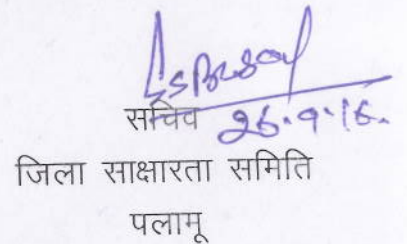 सचिव 26.9.16.
जिला साक्षारता समिति
पलामू